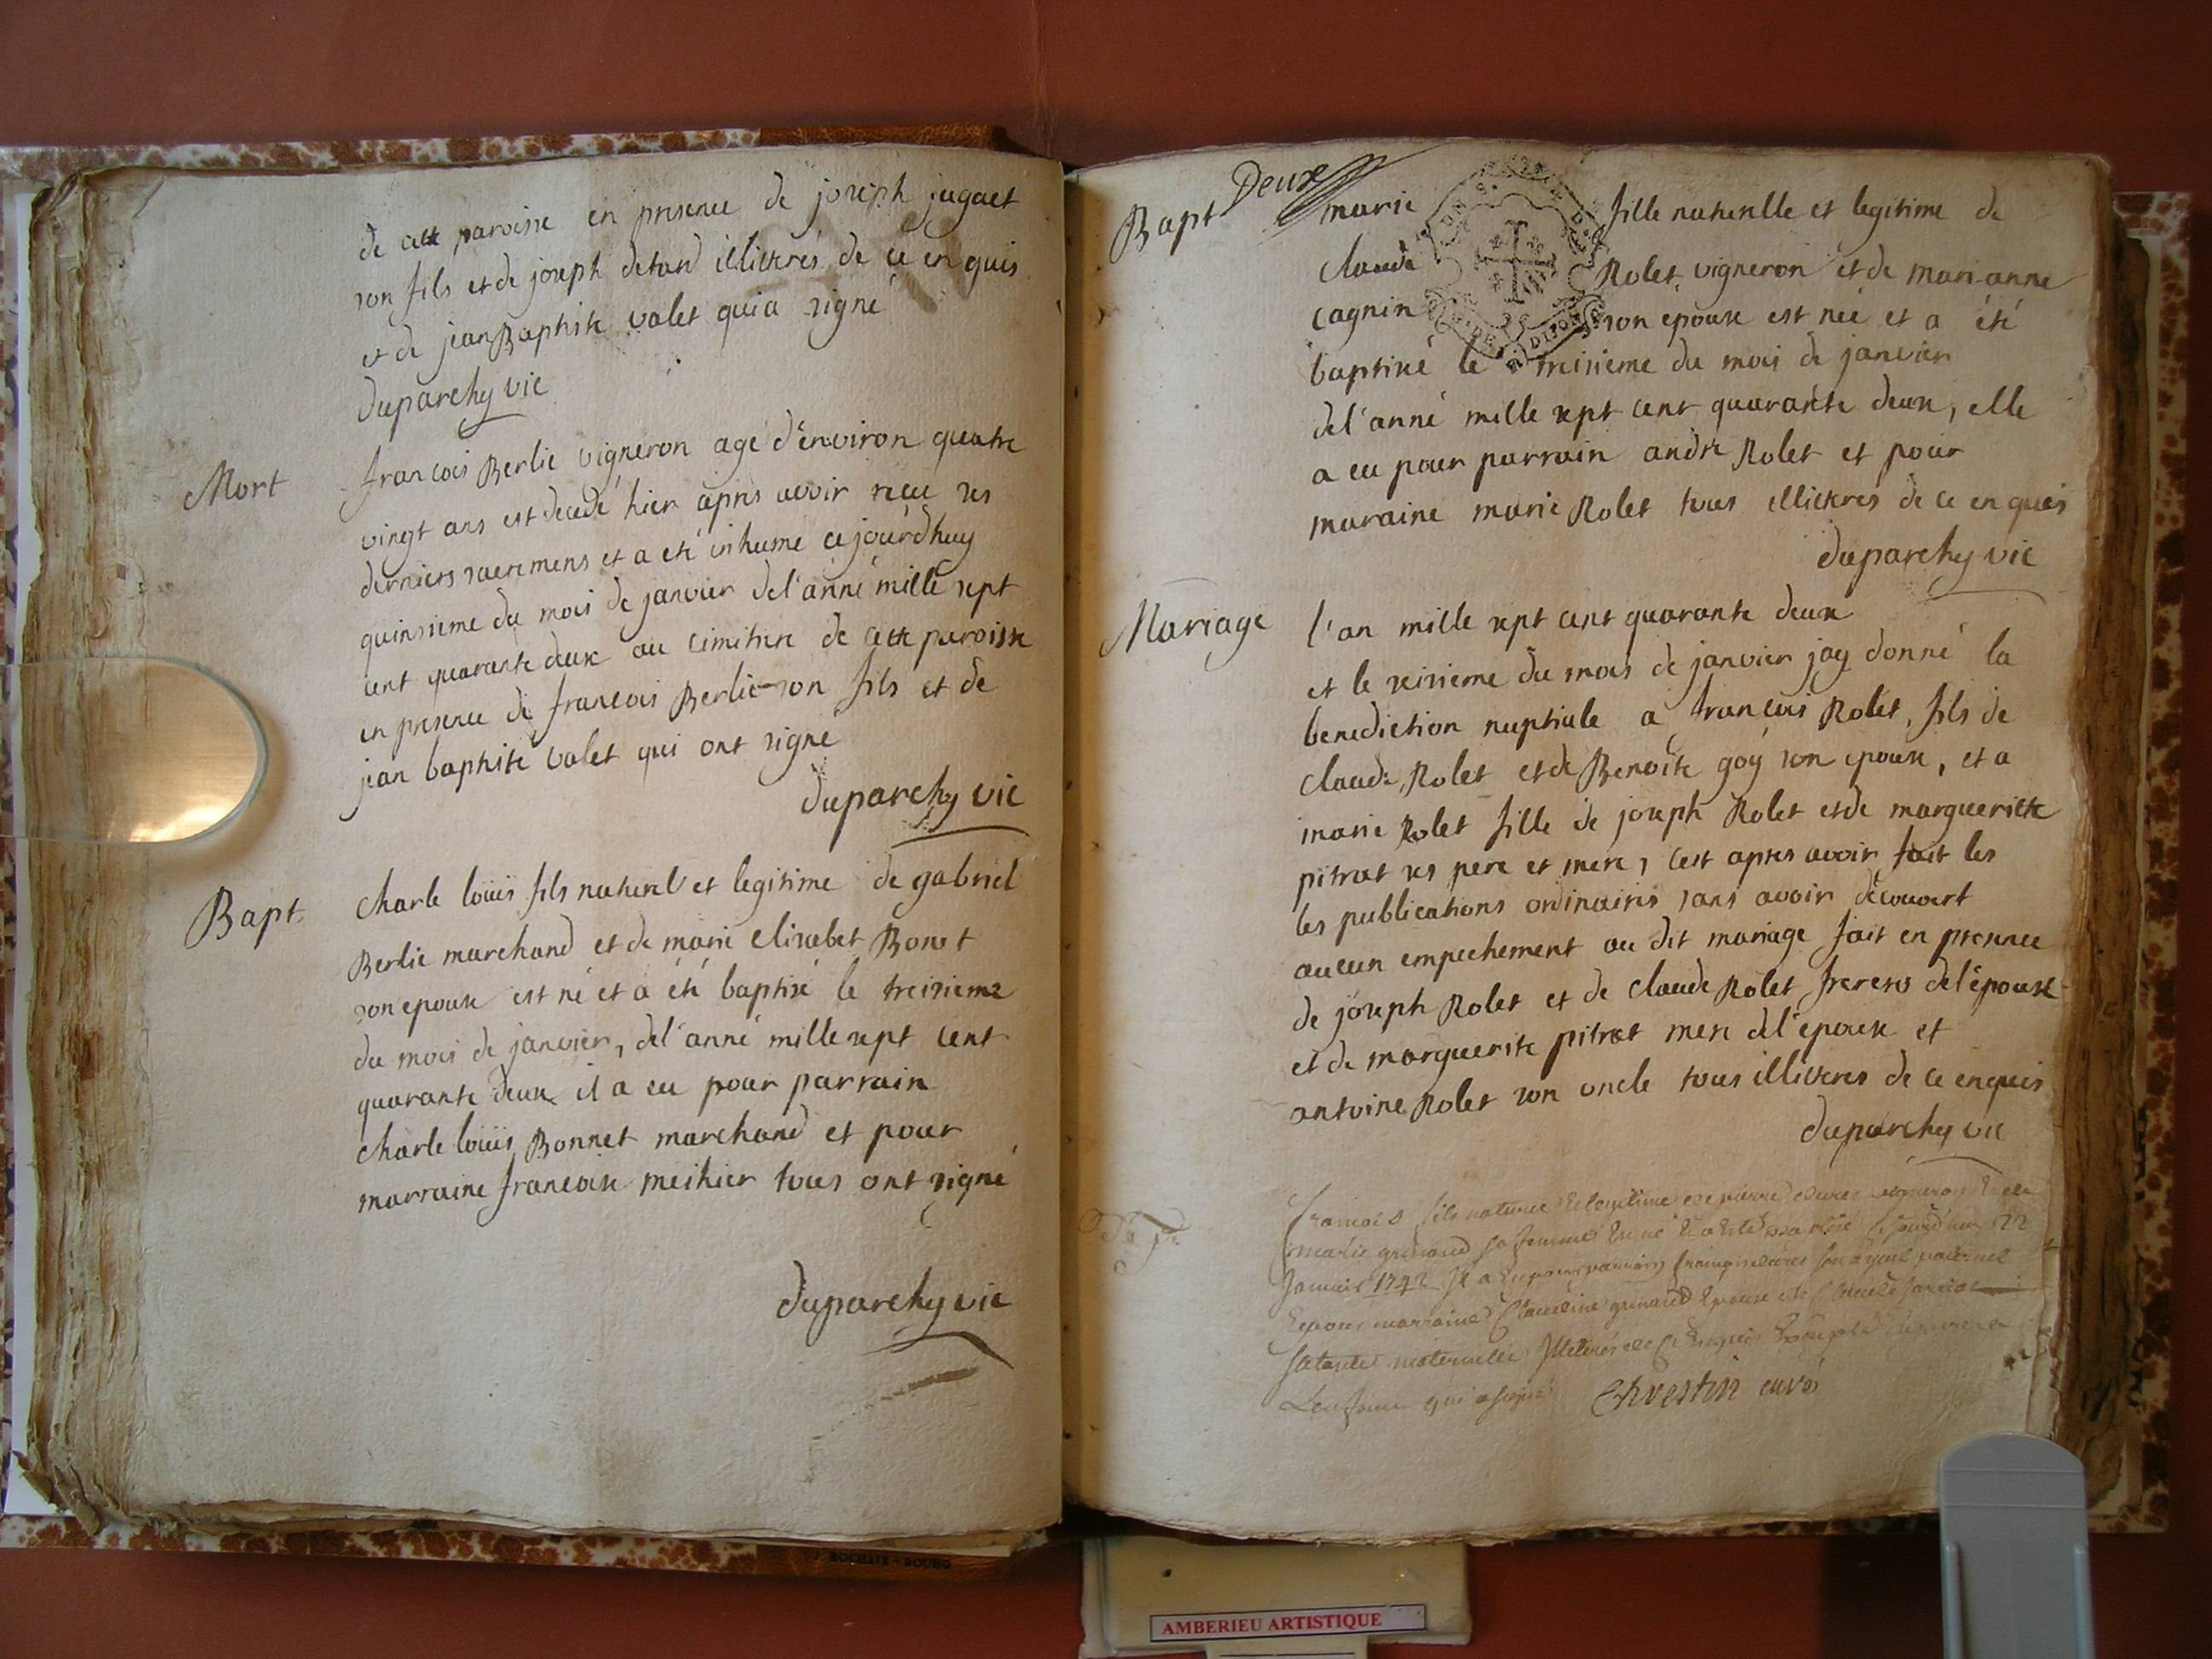 de cette paroisse en presence de joseph juguet
son fils et de joseph detard illitterés de ce en quis
et de jean Baptiste valet qui a signé
duparchy vic
Mort
francois Berlie vigneron agé d'environ quatre
vingt ans est decedé hier apres avoir recu ses
derniers sacremens et a eté inhumé cejourdhuy
quinsieme du mois de janvier del'anné mille sept
cent quarante deux au cimitiere de cette paroisse
en presence de francois Berlie son fils et de
jean baptiste valet qui ont signé
duparchy vic
Bapt.
charle loüis fils naturel et legitime de gabriel
Berlie marchand et de marie elisabet Bonet
son epouse est né et a été baptisé le treisieme
du mois de janvier, del'anné mille sept cent
quarante deux il a eu pour parrain
charle loüis Bonnet marchand et pour
marraine francoise meihier tous ont signé
duparchy vic
Deux
Bapt
marie fille naturelle et legitime de
claude Rolet vigneron et de marianne
cagnin son epouse est née et a été
baptisé le treisieme du mois de janvier
del'anné mille sept cent quarante deux, elle
a eu pour parrain andre Rolet et pour
maraine marie Rolet tous illitterés de ce en quis
duparchy vic
Mariage
l'an mille sept cent quarante deux
et le seisieme du mois de janvier jay donné la
benediction nuptiale a francois Rolet, fils de
claude Rolet et de Benoite goy son epouse, et a
marie Rolet fille de joseph Rolet et de margueritte
pitrat ses pere et mere, cest apres avoir fait les
les publications ordinaires sans avoir découvert
aucun empechement au dit mariage fait en presence
de joseph Rolet et de claude Rolet freres del'épouse
et de marguerite pitrat mere del'epouse et
antoine Rolet son oncle tous illitteres de ce enquis
duparchy vic
francois fils naturel et legitime de pierre vigneron et de
marie grinand sa femme est né et a été baptisé ce jourdhuy 22
Janvier 1742 Il a eu pour parrain son ayeul paternel
et pour marraine Claudine grinand epouse de
sa tante maternelle Illiterés de ce enquis
qui a signé
Chrestin curé
AMBERIEU ARTISTIQUE